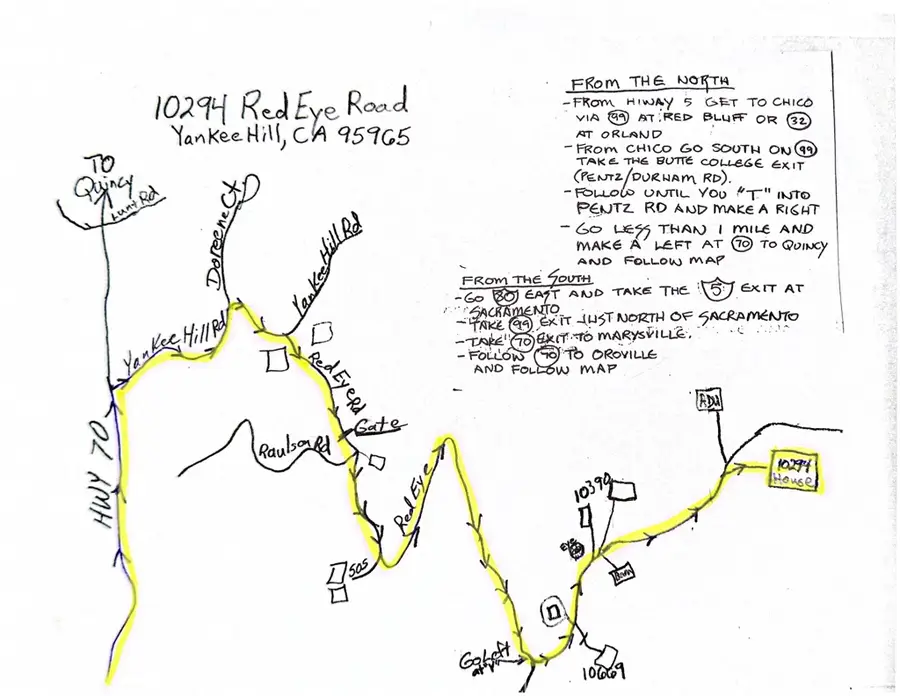 10294 Red Eye Road
Yankee Hill, CA 95965
FROM THE NORTH
-FROM HIWAY 5 GET TO CHICO
VIA 99 AT RED BLUFF OR 32
AT ORLAND
-FROM CHICO GO SOUTH ON 99
TAKE THE BUTTE COLLEGE EXIT
(PENTZ/DURHAM RD).
-FOLLOW UNTIL YOU "T" INTO
PENTZ RD AND MAKE A RIGHT
- GO LESS THAN 1 MILE AND
MAKE A LEFT AT 70 TO QUINCY
AND FOLLOW MAP
FROM THE SOUTH
-GO 80 EAST AND TAKE THE 5 EXIT AT
SACRAMENTO
-TAKE 99 EXIT JUST NORTH OF SACRAMENTO
-TAKE 70 EXIT TO MARYSVILLE.
-FOLLOW 70 TO OROVILLE
AND FOLLOW MAP
TO
Quincy
Lunt Rd
Doreene Ct
Yankee Hill Rd
Yankee Hill Rd
Red Eye Rd
Gate
HWY 70
Raulson Rd
Red Eye
505
ADU
10294
House
10390
Eye
Barn
Go Left
at "Y"
10669